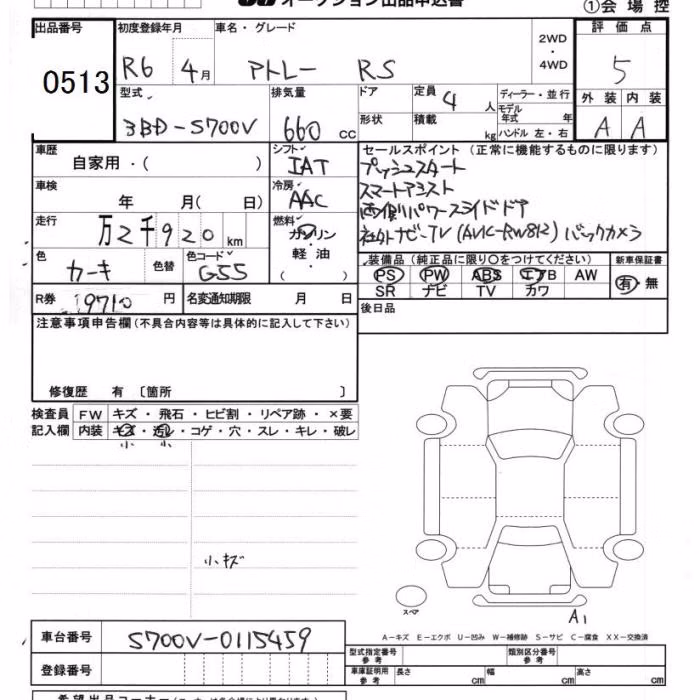 オークション出品申込書
①会場控
出品番号
0513
初度登録年月
R6 4月
車名・グレード
アトレー RS
2WD
・
4WD
評価点
5
外装 内装
A A
型式
3BD-S700V
排気量
660 cc
ドア
形状
定員
4 人
積載
kg
ディーラー・並行
モデル年式 年
ハンドル 左・右
車歴
自家用・( )
シフト
IAT
車検
年 月( 日)
冷房
AAC
走行
万2千920km
燃料
ガソリン
・
軽油
( )
色
カーキ
色替
色コード
G55
R券
9710 円
名変通知期限 月 日
セールスポイント (正常に機能するものに限ります)
プッシュスタート
スマートアシスト
両側パワースライドドア
社外ナビーTV (AVIC-RW812) バックカメラ
装備品 (純正品に限り〇をつけてください)
新車保証書
PS PW ABS エアB AW
SR ナビ TV カワ
有・無
後日品
注意事項申告欄(不具合内容等は具体的に記入して下さい)
修復歴 有 〔箇所 〕
検査員
記入欄
FW キズ・飛石・ヒビ割・リペア跡・×要
内装 キズ・汚レ・コゲ・穴・スレ・キレ・破レ
小 小
小キズ
スペア
A1
A-キズ E-エクボ U-凹み W-補修跡 S-サビ C-腐食 XX-交換済
車台番号
S700V-0115459
登録番号
型式指定番号
参考
類別区分番号
参考
車庫証明用
参考
長さ cm
幅 cm
高さ cm
希望出品コーナー